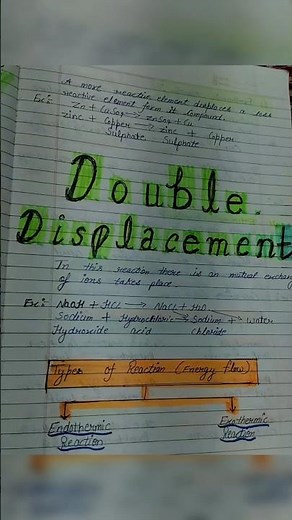 A more reactive element displaces a less
reactive element form its Compound.
Ex:- Zn + CuSo4 → ZnSo4 + Cu
zinc + Copper → zinc + Copper
Sulphate Sulphate
Double
Displacement
In this reaction there is an mutual exchang
of ions takes place
Ex:- NaOH + HCL → NaCl + H2O
Sodium + Hydrochloric → Sodium + water
Hydroxide acid chloride
Types of Reaction (Energy flow)
Endothermic Exothermic
Reaction Reaction